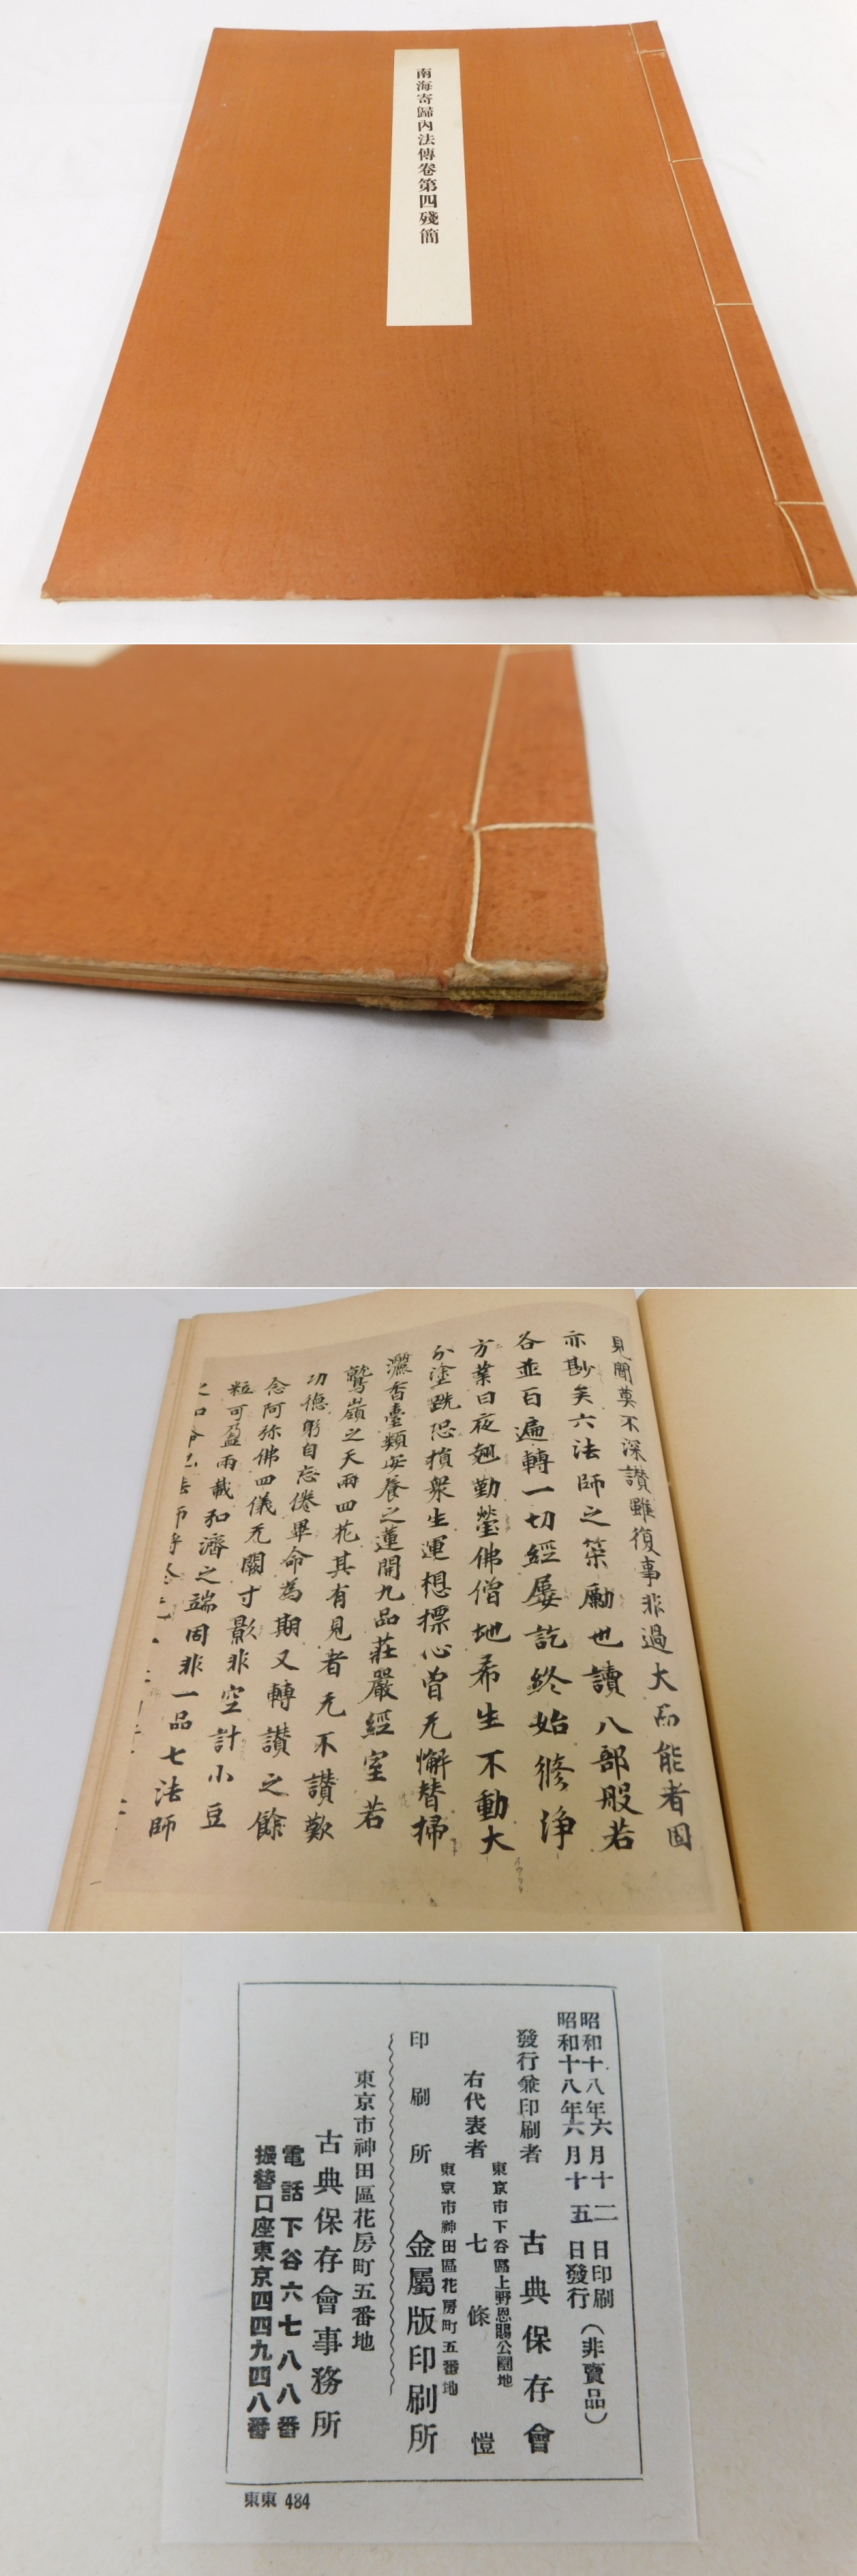 南海寄歸內法傳卷第四殘簡
見聞莫不深讚雖復事非過大而能者固
亦尠矣六法師之策勵也讀八部般若
各並百遍轉一切經屢訖終始修淨
方業日夜翹勤瑩佛僧地希生不動大
分塗跣恐損衆生運想標心曾无懈替掃
灑香臺類安養之蓮開九品莊嚴經室若
鷲嶺之天雨四花其有見者无不讚歎
功德躬自忘倦畢命為期又轉讚之餘
念阿弥佛四儀无闕寸影非空計小豆
粒可盈兩載和濟之端固非一品七法師
昭和十八年六月十二日印刷
昭和十八年六月十五日發行
(非賣品)
發行兼印刷者 古典保存會
東京市下谷區上野恩賜公園地
右代表者 七條愷
東京市神田區花房町五番地
印刷所 金屬版印刷所
東京市神田區花房町五番地
古典保存會事務所
電話下谷六七八八番
振替口座東京四四九四八番
東東 484